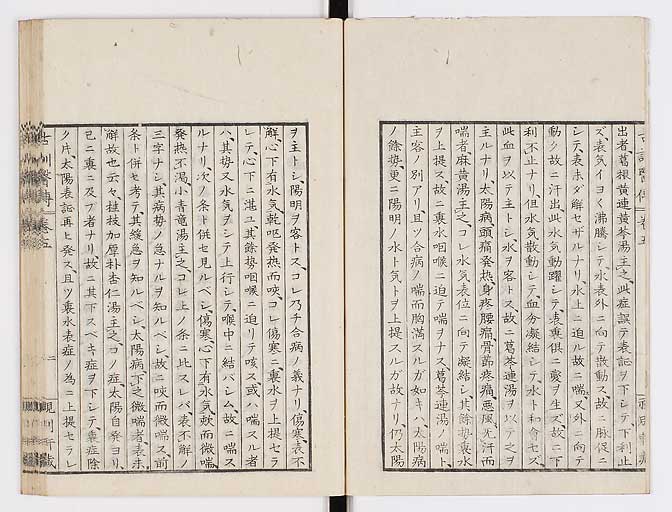 出者、葛根黄連黄芩湯主之、此症誤テ表証ヲ下シテ下利止
ズ、表気イヨく沸騰シテ、水表外ニ向テ散動ス、故ニ脉促ニ
シテ、表未ダ解セザルナリ、水上ニ迫ル故ニ喘、又外ニ向テ
動ク故ニ汗出、此水気動躍シテ、表裏倶ニ変ヲ生ズ、故ニ下
利不止ナリ、但水気散動シテ、血分凝結シテ、水ト和會セズ、
此血ヲ以テ主トシ、水ヲ客トス、故ニ葛芩連湯ヲ以テ之ヲ
主ルナリ、太陽病頭痛発熱、身疼腰痛、骨節疼痛、悪風、无汗而
喘者、麻黄湯主之、コレ水気表位ニ向テ凝結シ、其餘勢裏水
ヲ上提ス、故ニ裏水咽喉ニ迫テ喘ヲナス、葛芩連湯ノ喘ト、
主客ノ別アリ、且ツ合病ノ喘而胸満スルガ如キハ、太陽病
ノ餘勢、更ニ陽明ノ水ト気トヲ上提スルガ故ナリ、仍太陽
ヲ主トシ、陽明ヲ客トス、コレ乃チ合病ノ義ナリ、傷寒表不
解、心下有水気、乾呕発熱而咳、コレ傷寒ニ、裏水ヲ上提セラ
レテ、心下ニ湛ユ、其餘勢咽喉ニ迫リテ咳ス、或ハ喘スル者
ハ、其勢又水気ヲシテ上行シテ、喉中ニ結バシム、故ニ喘ス
ルナリ、次ノ条ト併セ見ルベシ、傷寒、心下有水気、咳而微喘、
発熱不渇、小青竜湯主之、コレ上ノ条ニ比スレバ、表不解ノ
三字ナシ、其病勢ノ急ナルヲ知ルベシ、故ニ咳而微喘ス、前
条ト併セ考テ、其緩急ヲ知ルベシ、太陽病、下之微喘者、表未
解故也云々、桂枝加厚朴杏仁湯主之、コノ症太陽自発ヨリ、
已ニ裏ニ及ブ者ナリ、故ニ其下スベキ症ヲ下シテ、裏症除
ク片、太陽表証再ビ発ス、且ツ裏水表症ノ為ニ上提セラレ
古訓醫傳
巻五
二